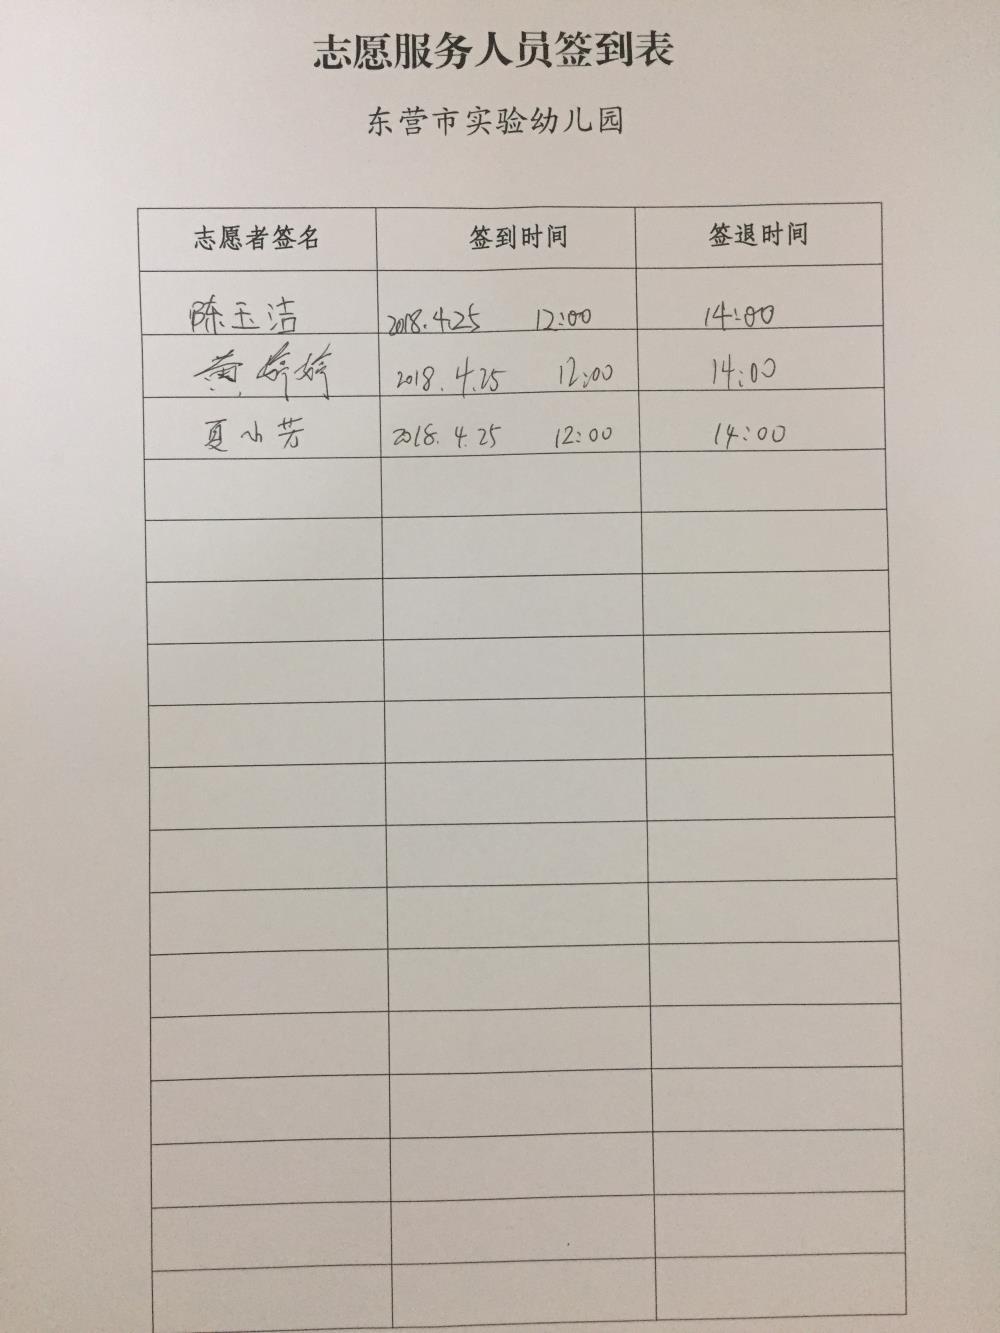 志愿服务人员签到表
东营市实验幼儿园
志愿者签名 签到时间 签退时间
陈玉洁 2018.4.25 12:00 14:00
黄婷婷 2018.4.25 12:00 14:00
夏小芳 2018.4.25 12:00 14:00